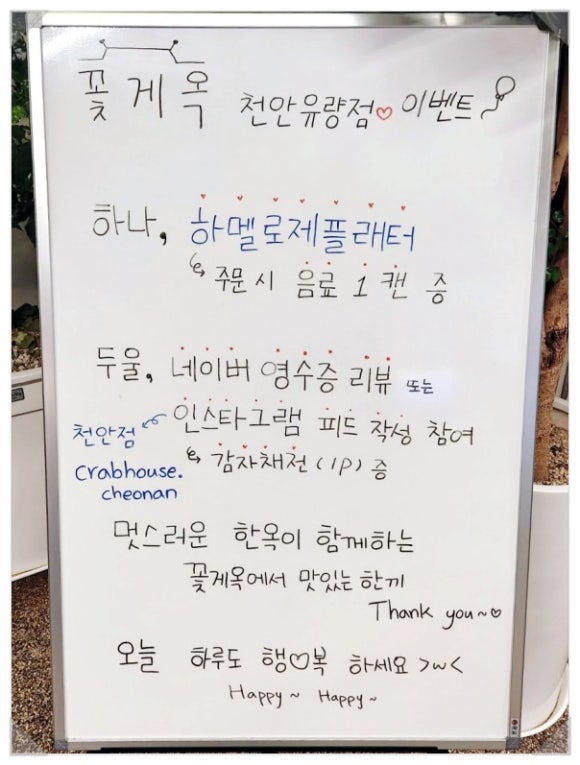 꽃게옥 천안유량점♡ 이벤트
하나, 하멜로제플래터
주문 시 음료 1 캔 증
두울, 네이버 영수증 리뷰 또는
인스타그램 피드 작성 참여
천안점
crabhouse.
cheonan
감자채전 (1P) 증
멋스러운 한옥이 함께하는
꽃게옥에서 맛있는 한끼
Thank you~♡
오늘 하루도 행♡복 하세요 >w<
Happy~ Happy~